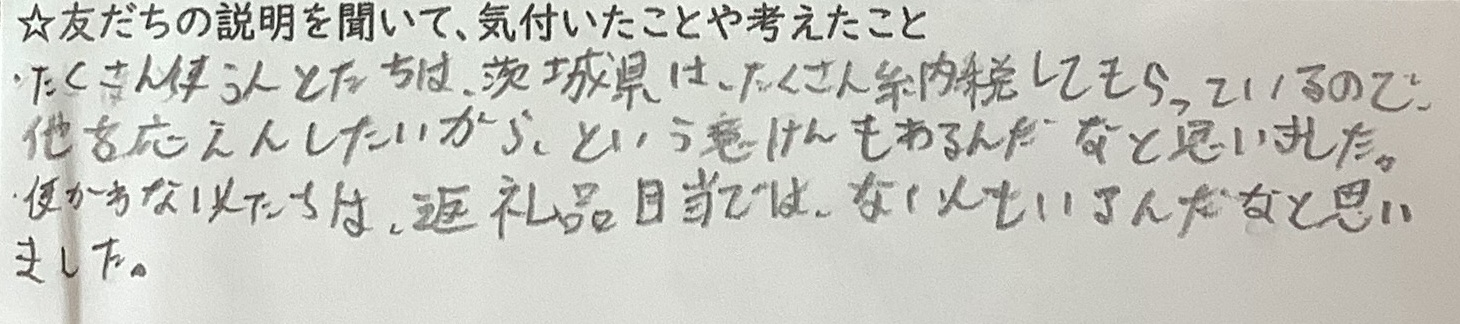 ☆友だちの説明を聞いて、気付いたことや考えたこと
・たくさん使う人とたちは、茨城県は、たくさん納税してもらっているので、
他を応えんしたいから、という意けんもあるんだなと思いました。
・使かわない人たちは、返礼品目当では、ない人もいるんだなと思い
ました。